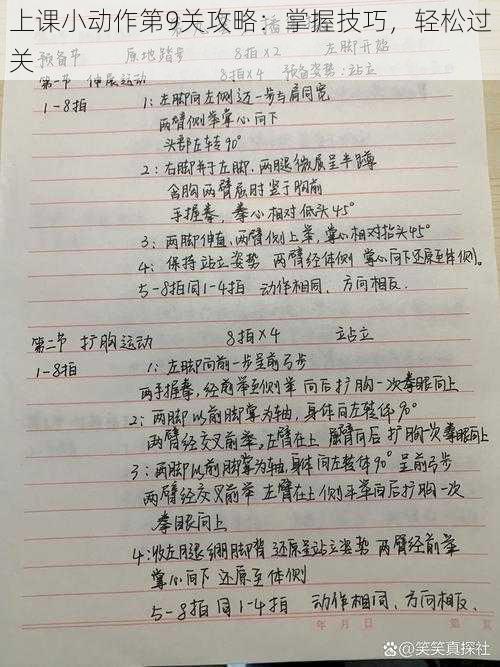 上课小动作第9关攻略：掌握技巧，轻松过
关
预备节 原地踏步 8拍×2 左脚开始
第一节 伸展运动 8拍×4 预备姿势：站立
1-8拍 1：左脚向左侧迈一步与肩同宽
两臂侧举掌心向下
头部左转90°
2：右脚并于左脚，两腿微屈呈半蹲
含胸两臂屈肘竖于胸前
手握拳，拳心相对低头45°
3：两脚伸直，两臂侧上举，掌心相对抬头45°
4：保持站立姿势 两臂经体侧 掌心向下还原至体侧。
5-8拍同1-4拍 动作相同，方向相反.
第二节 扩胸运动 8拍×4 站立
1-8拍 1：左脚向前一步呈前弓步
两手握拳，经前举至侧举 向后扩胸一次拳眼向上
2：两脚以前脚掌为轴，身体向左转体90°
两臂经交叉前举，左臂在上 屈臂向后 扩胸一次拳眼向上
3：两脚以前脚掌为轴，身体向左转体90°呈前弓步
两臂经交叉前举 左臂在上侧平举向后扩胸一次
拳眼向上
4：收左腿绷脚背 还原呈站立姿势 两臂经前举
掌心向下 还原至体侧
5-8拍同1-4拍 动作相同、方向相反.
年 月 日 第 页
@笑笑真探社